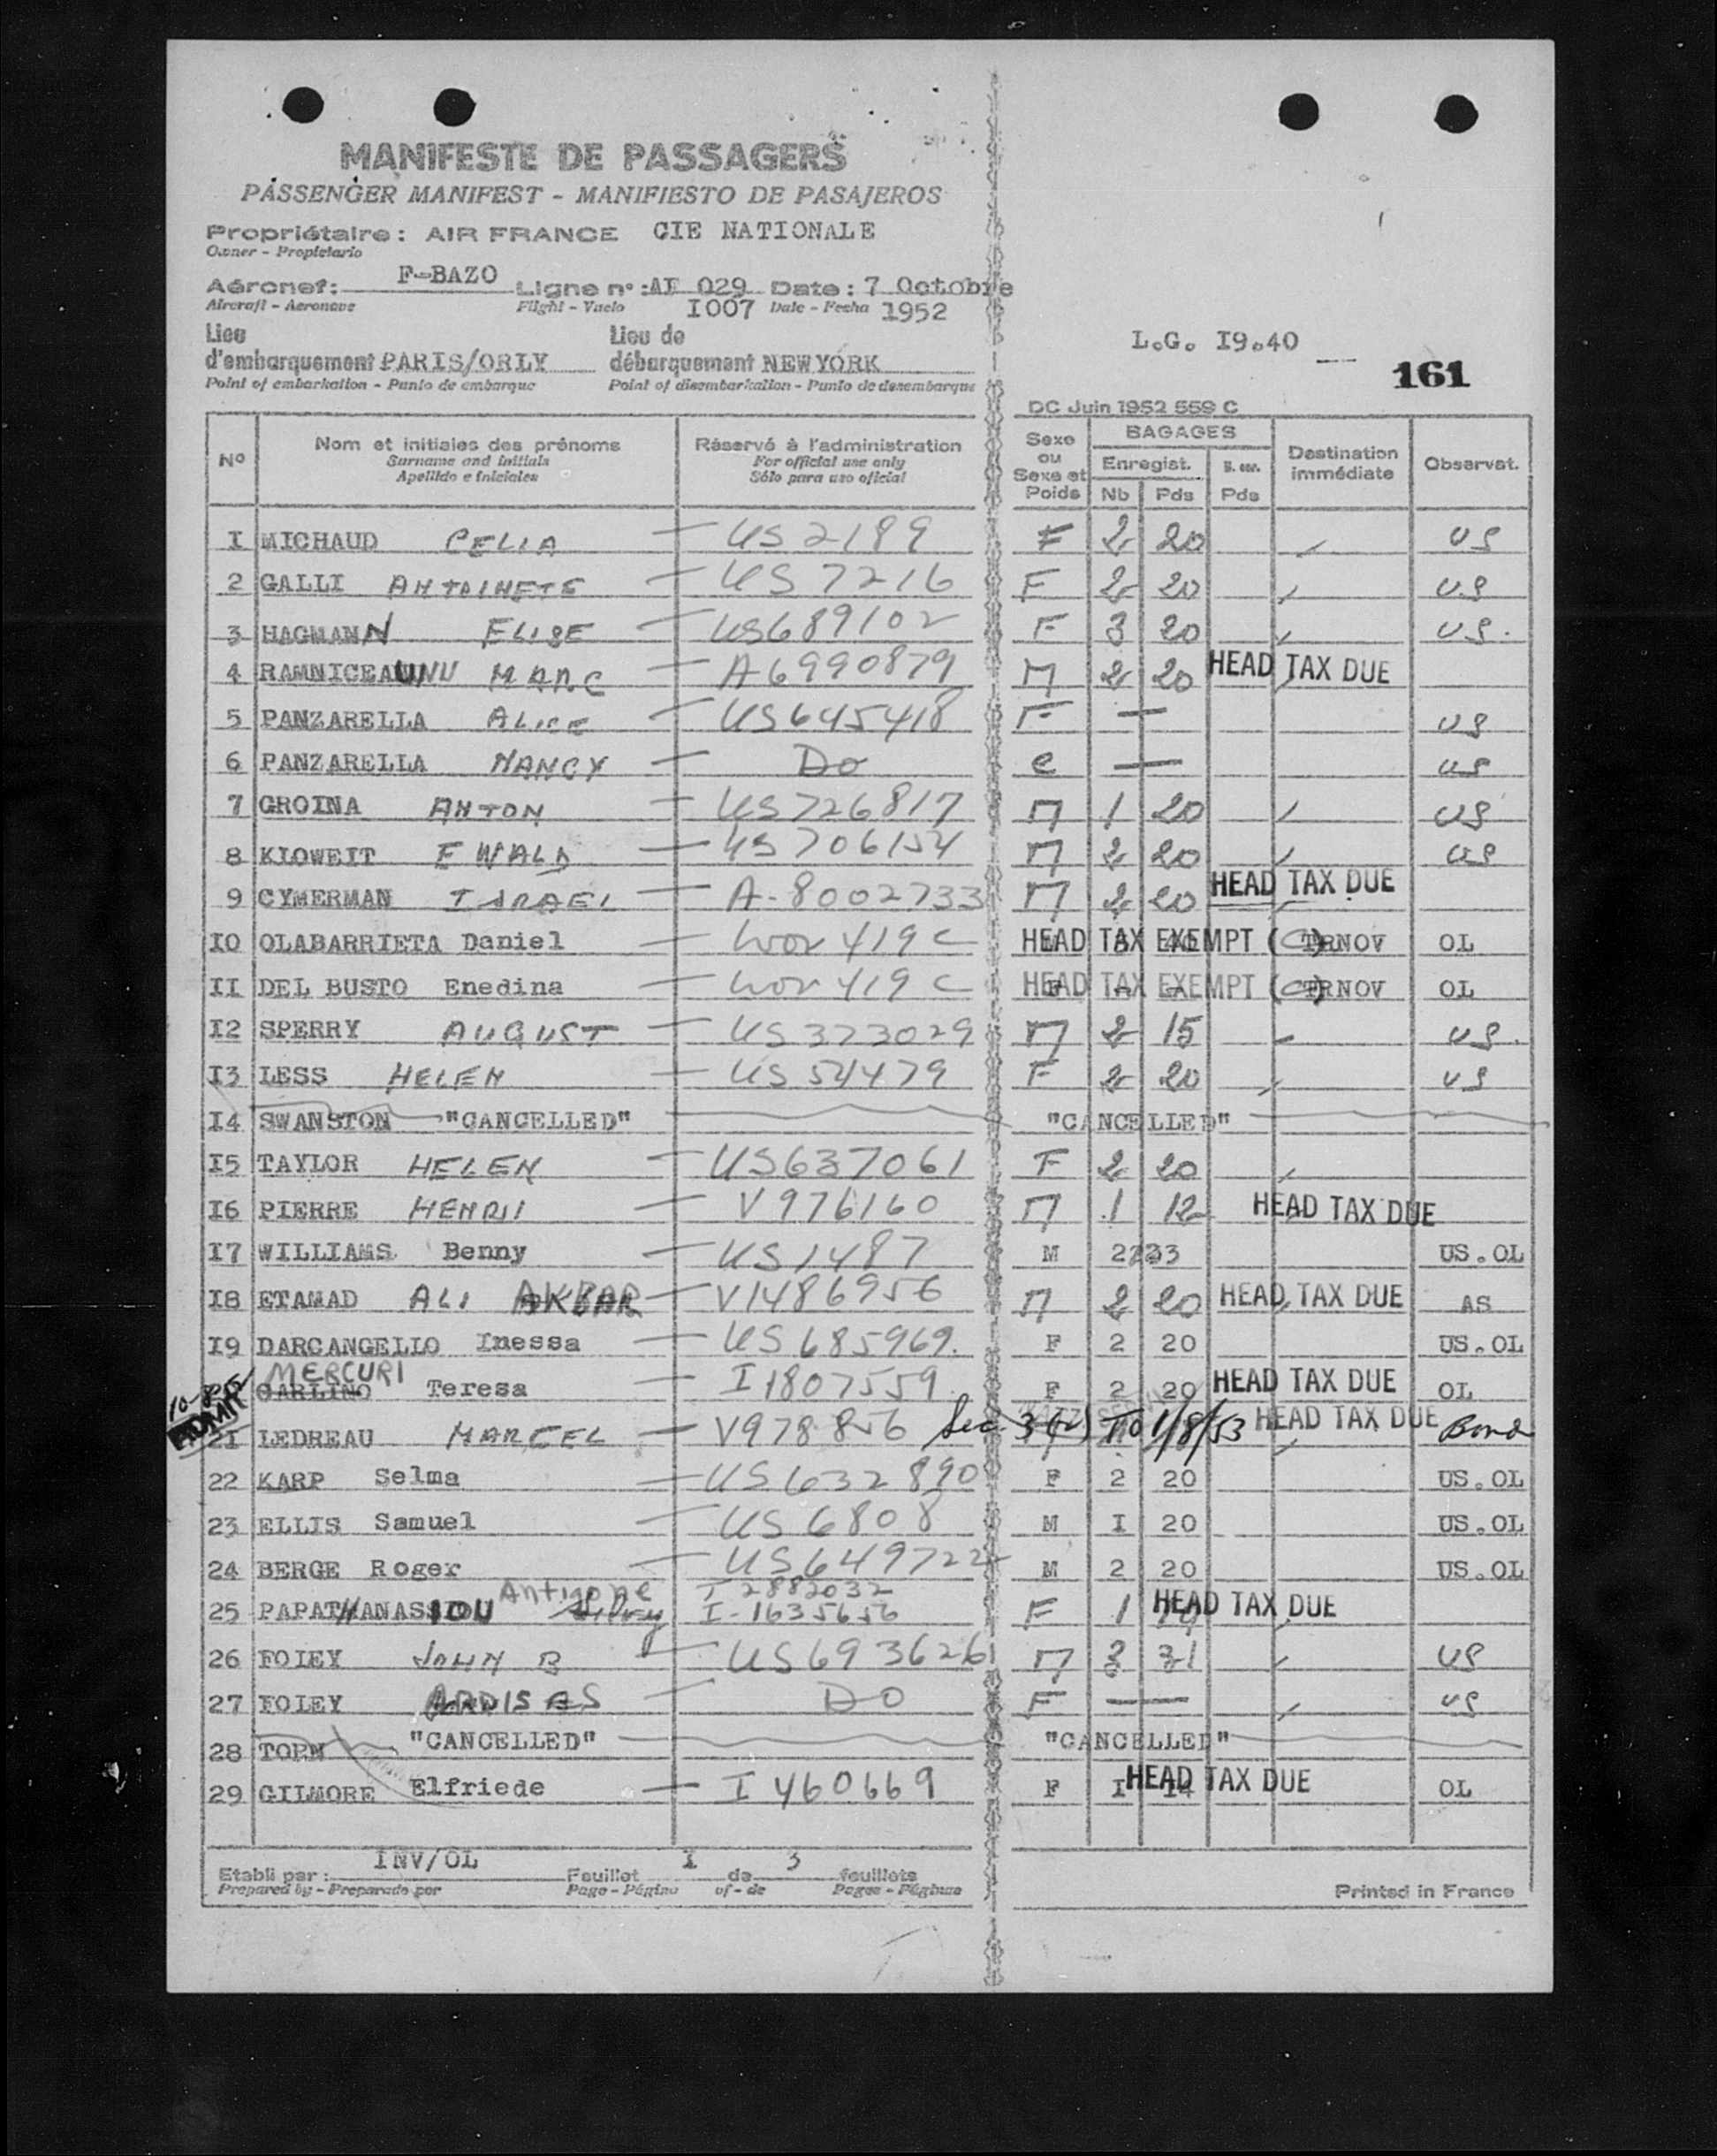 MANIFESTE DE PASSAGERS
PASSENGER MANIFEST - MANIFIESTO DE PASAJEROS
Propriétaire : AIR FRANCE CIE NATIONALE
Owner - Propietario
Aéronef: F-BAZO Ligne n° : AF 029 Date : 7 Octobre
Aircraft - Aeronave Flight - Vuelo I007 Date - Fecha 1952
Lieu Lieu de
d'embarquement PARIS/ORLY débarquement NEW YORK
Point of embarkation - Punto de embarque Point of disembarkation - Punto de desembarque
L.G. I9.40
161
DC Juin 1952 559 C
N° Nom et initiales des prénoms Réservé à l'administration Sexe ou Sexe et Poids BAGAGES Destination immédiate Observat.
Surname and initials For official use only Enregist.
Apellido e iniciales Sólo para uso oficial Nb Pds Pds
I MICHAUD CELIA — US 2189 F 2 20 US
2 GALLI ANTOINETE — US 7216 F 2 20 US
3 HAGMANN ELISE — US689102 F 3 20 US.
4 RAMNICEAUNU MARC — A6990879 M 2 20 HEAD TAX DUE
5 PANZARELLA ALICE — US645418 F — US
6 PANZARELLA NANCY — Do C — US
7 GROINA ANTON — US726817 M 1 20 US
8 KIOWEIT EWALD — US706154 M 2 20 US
9 CYMERMAN ISRAEL — A-8002733 M 2 20 HEAD TAX DUE
I0 OLABARRIETA Daniel — 419 C HEAD TAX EXEMPT (C) TRNOV OL
II DEL BUSTO Enedina — 419 C HEAD TAX EXEMPT (C) TRNOV OL
I2 SPERRY AUGUST — US323029 M 2 15 US.
I3 LESS HELEN — US 54479 F 2 20 US
I4 SWANSTON "CANCELLED" "CANCELLED"
I5 TAYLOR HELEN — US637061 F 2 20
I6 PIERRE HENRI — V976160 M 1 12 HEAD TAX DUE
I7 WILLIAMS Benny — US1487 M 2 US.OL
I8 ETAMAD ALI AKBAR — V1486956 M 2 20 HEAD TAX DUE AS
I9 DARCANGELLO Inessa — US 685969. F 2 20 US.OL
MERCURI
CARLINO Teresa — I1807559 F 2 20 HEAD TAX DUE OL
ADMIT 21 LEDREAU MARCEL — V978856 Sec 3(2) TO 1/8/53 HEAD TAX DUE Bond
22 KARP Selma — US632890 F 2 20 US.OL
23 ELLIS Samuel — US 6808 M I 20 US.OL
24 BERGE Roger — US649722 M 2 20 US.OL
Antigone I 2882032
25 PAPATHANASSIOU I-1635656 F 1 19 HEAD TAX DUE
26 FOLEY JOHN B — US6936261 M 3 31 US
27 FOLEY ARDIS ES — DO F — US
28 "CANCELLED" "CANCELLED"
29 GILMORE Elfriede — I 460669 F I 14 HEAD TAX DUE OL
Etabli par : INV/OL Feuillet I de 3 feuillets
Prepared by - Preparado por Page - Página of - de Pages - Páginas
Printed in France